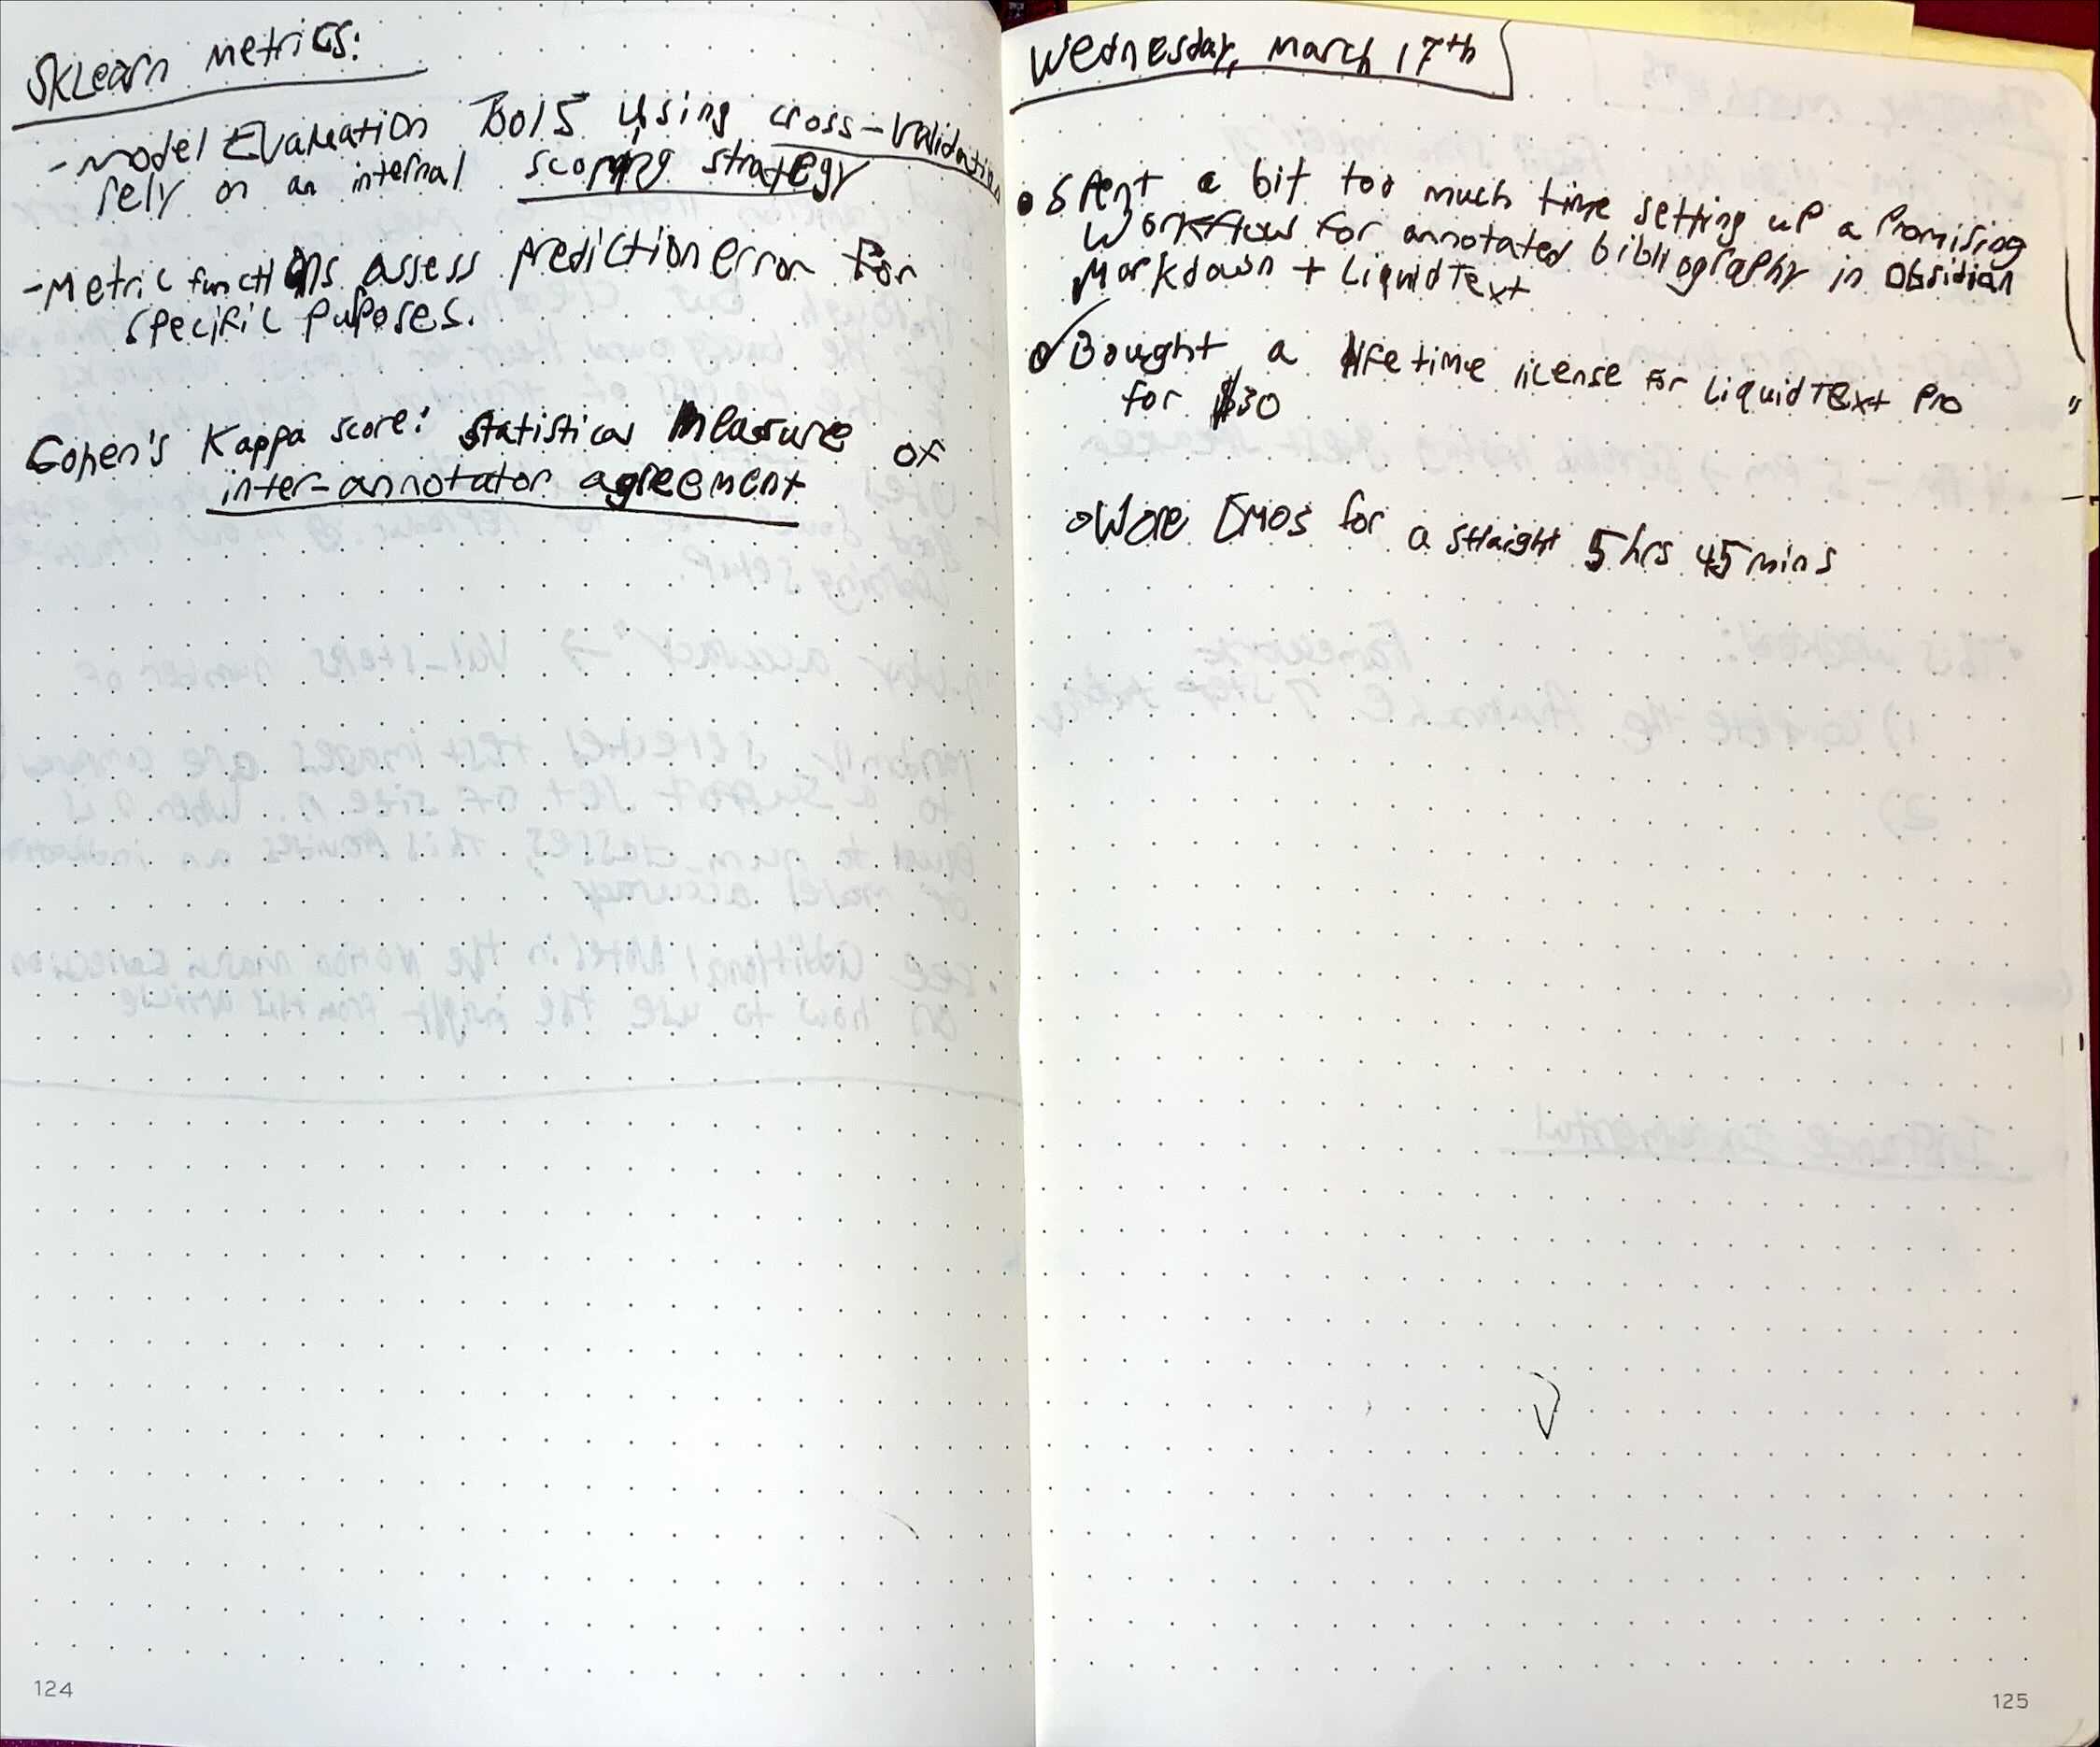 SKLearn metrics:
- Model Evaluation Tools using cross-validation
rely on an internal scoring strategy
- Metric functions assess prediction error for
specific puposes.
Cohen's Kappa score: statistical measure of
inter-annotator agreement
124
Wednesday, March 17th
Spent a bit too much time setting up a promising
workflow for annotated bibliography in Obsidian
Markdown + LiquidText
Bought a lifetime license for LiquidText Pro
for $30
Wore EMOS for a straight 5 hrs 45 mins
125